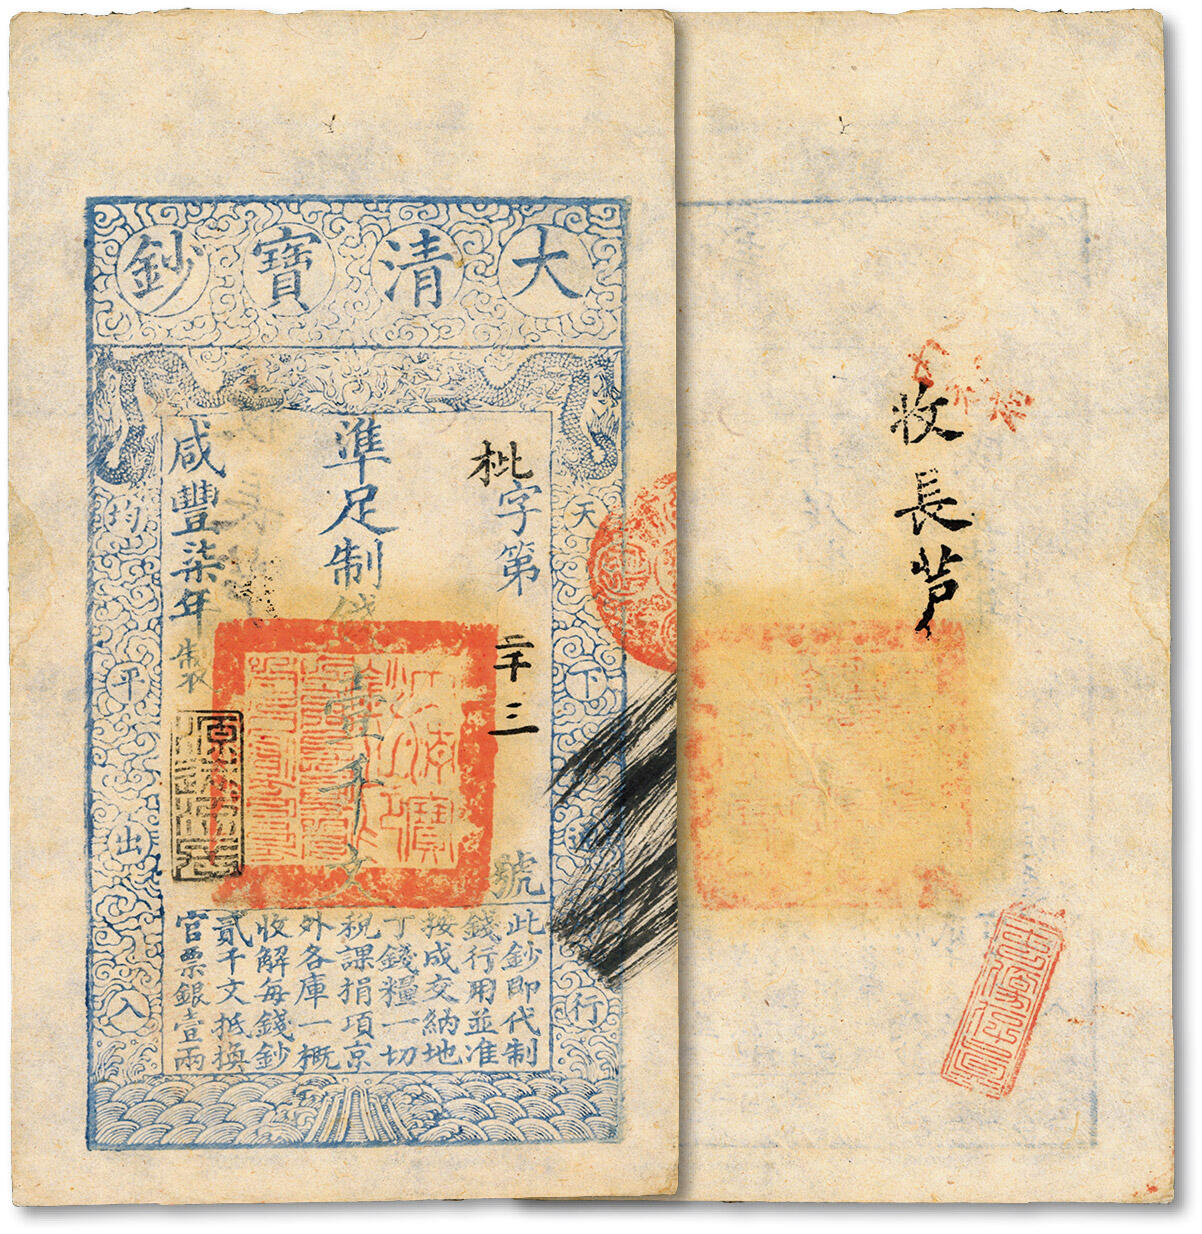 大清寶鈔
天下通行
均平出入
枇字第
二千三
號
準足制錢壹千文
咸豐柒年製
此鈔即代制
錢行用並准
按成交納地
丁錢糧一切
稅課捐項京
外各庫一概
收解每錢鈔
貳千文抵換
官票銀壹兩
收長芦